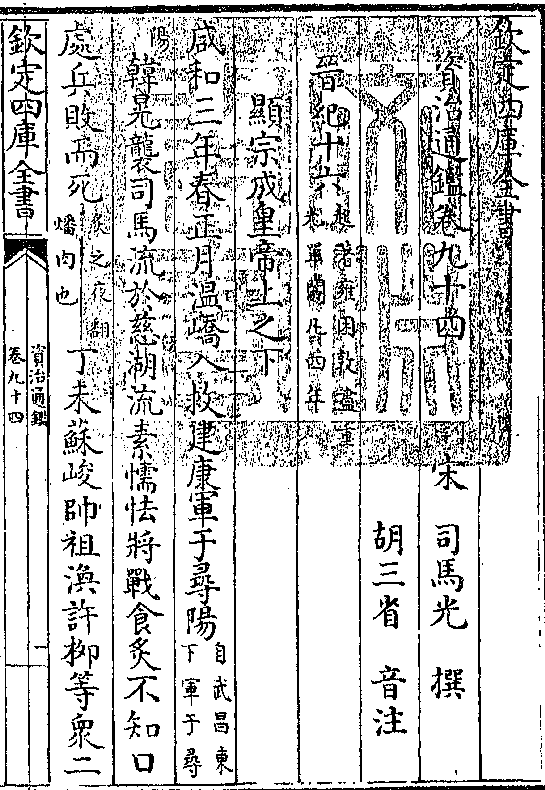 欽定四庫全書
資治通鑑卷九十四 宋 司馬光 撰
胡三省 音注
晉紀十六 起著雍困敦盡重光單閼凡四年
顯宗成皇帝上之下
咸和三年春正月温嶠入救建康軍于尋陽 自武昌東下軍于尋
陽 韓晃襲司馬流於慈湖流素懦怯將戰食炙不知口
處兵敗而死 炙之夜翻燔肉也 丁未蘇峻帥祖渙許柳等衆二
欽定四庫全書
資治通鑑
卷九十四
一